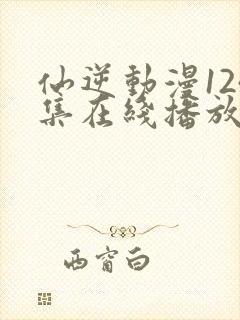 仙逆動漫12
集在綫播放
西窗白